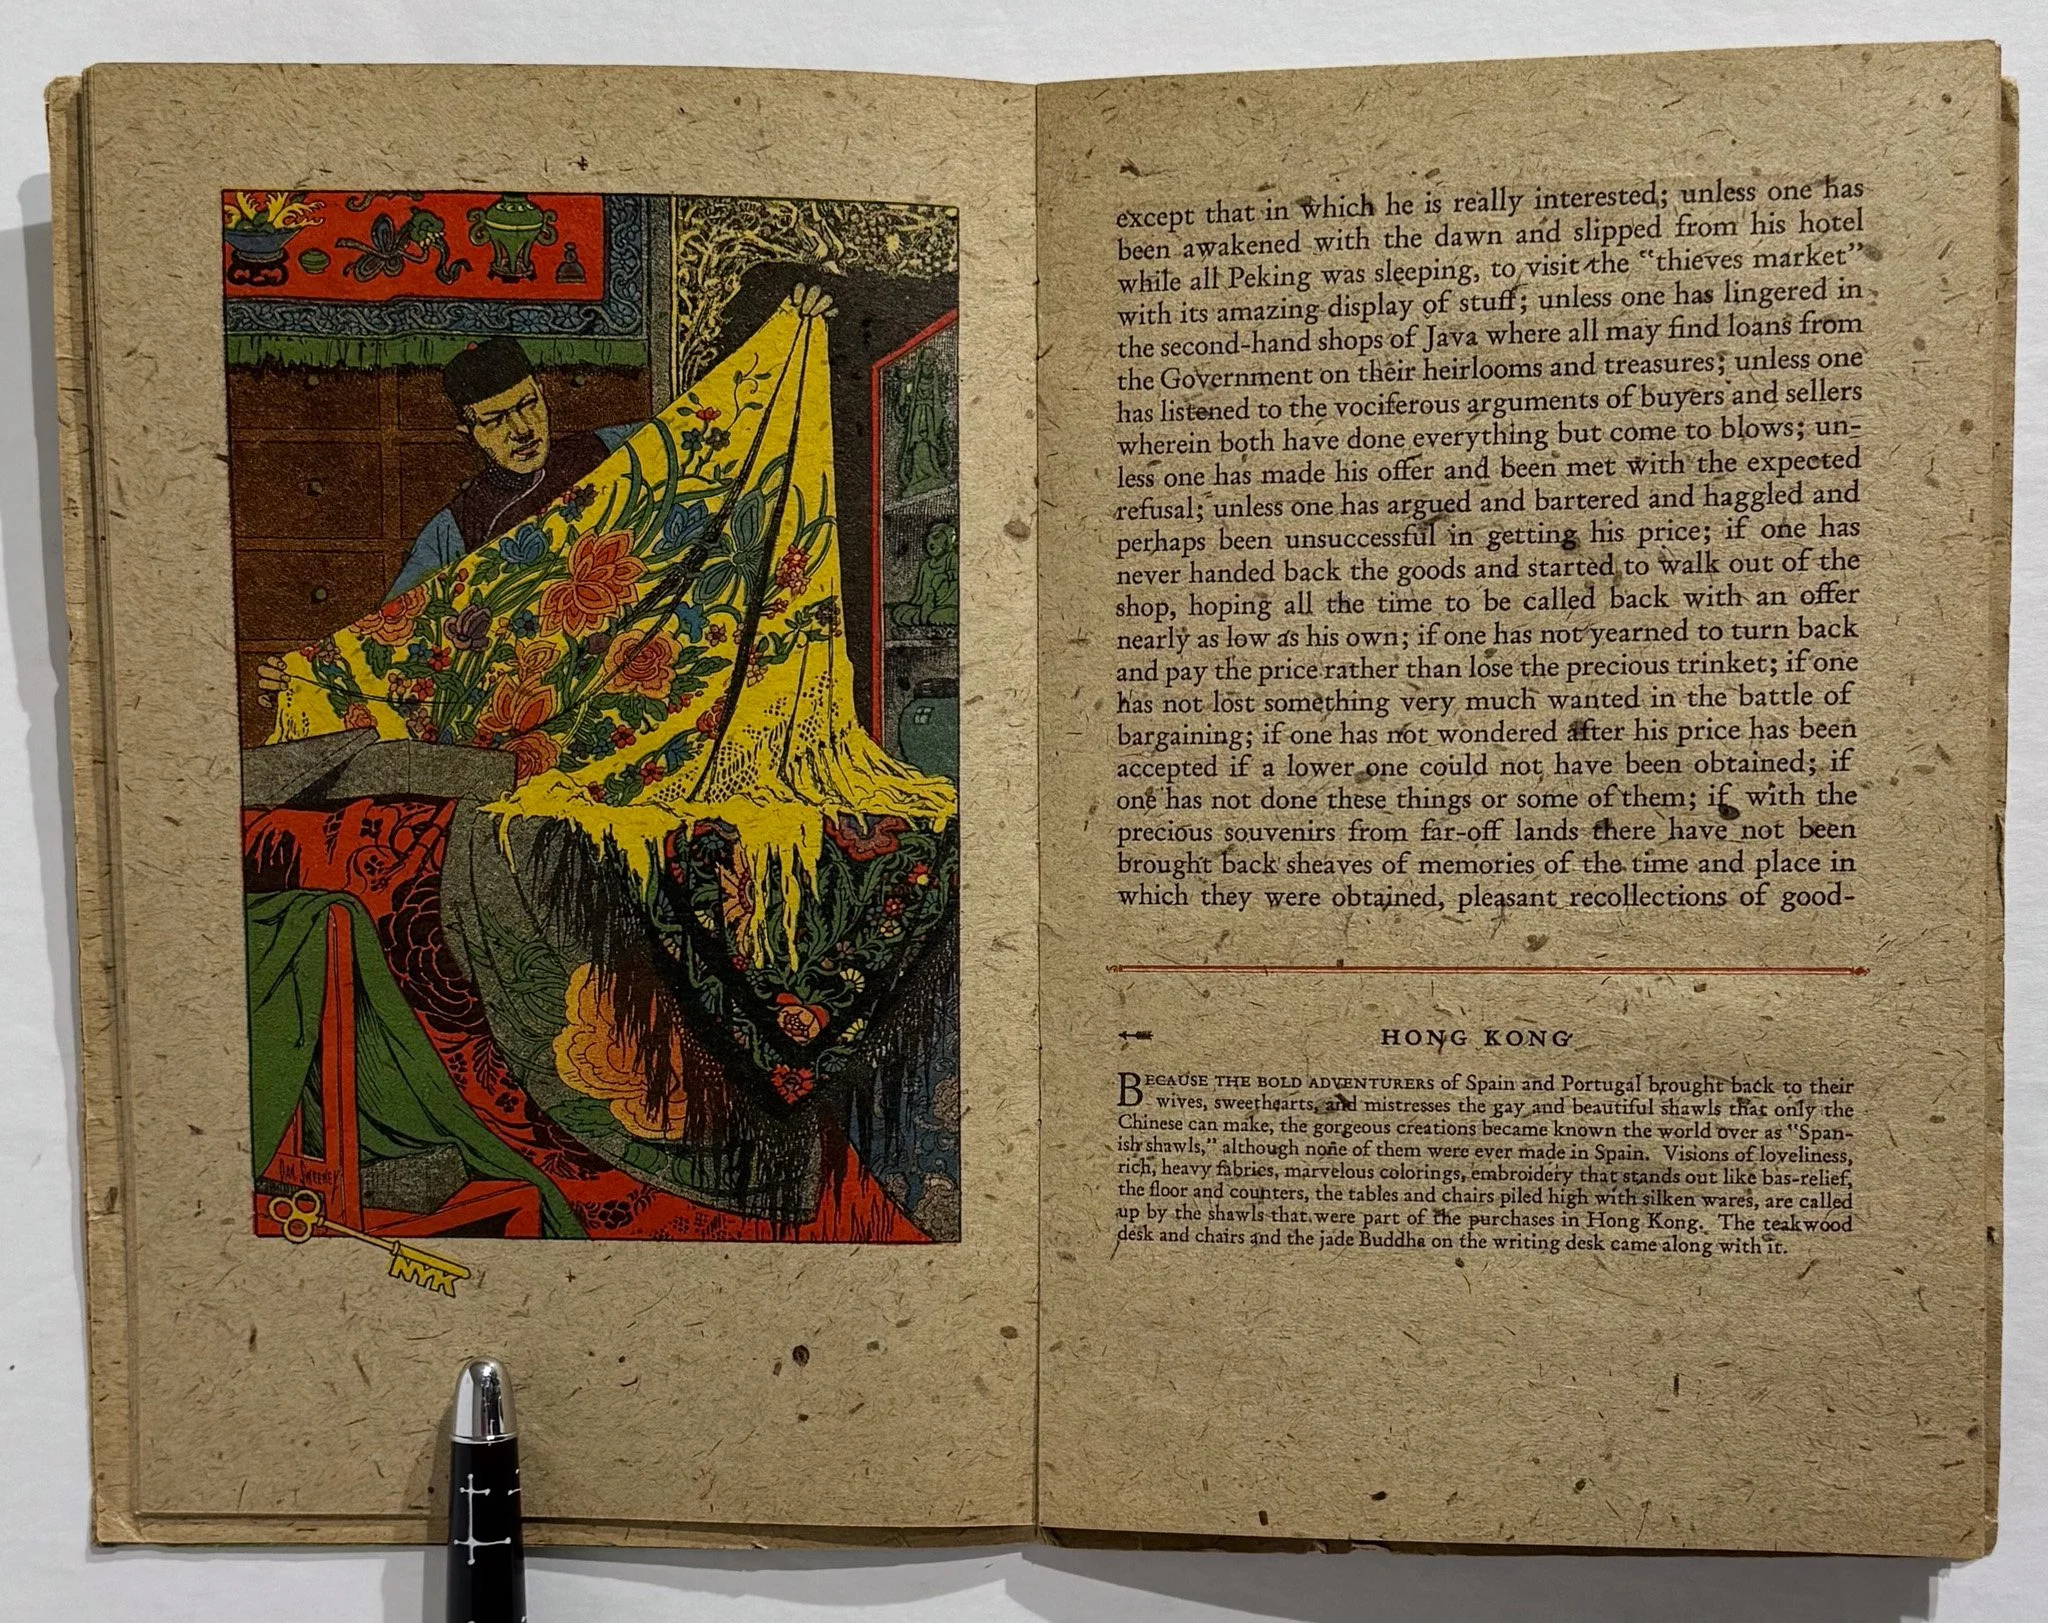 DAN SWEENEY
NYK
except that in which he is really interested; unless one has
been awakened with the dawn and slipped from his hotel
while all Peking was sleeping, to visit the “thieves market”
with its amazing display of stuff; unless one has lingered in
the second-hand shops of Java where all may find loans from
the Government on their heirlooms and treasures; unless one
has listened to the vociferous arguments of buyers and sellers
wherein both have done everything but come to blows; un-
less one has made his offer and been met with the expected
refusal; unless one has argued and bartered and haggled and
perhaps been unsuccessful in getting his price; if one has
never handed back the goods and started to walk out of the
shop, hoping all the time to be called back with an offer
nearly as low as his own; if one has not yearned to turn back
and pay the price rather than lose the precious trinket; if one
has not lost something very much wanted in the battle of
bargaining; if one has not wondered after his price has been
accepted if a lower one could not have been obtained; if
one has not done these things or some of them; if with the
precious souvenirs from far-off lands there have not been
brought back sheaves of memories of the time and place in
which they were obtained, pleasant recollections of good-
HONG KONG
BECAUSE THE BOLD ADVENTURERS of Spain and Portugal brought back to their
wives, sweethearts, and mistresses the gay and beautiful shawls that only the
Chinese can make, the gorgeous creations became known the world over as “Span-
ish shawls,” although none of them were ever made in Spain. Visions of loveliness,
rich, heavy fabrics, marvelous colorings, embroidery that stands out like bas-relief,
the floor and counters, the tables and chairs piled high with silken wares, are called
up by the shawls that were part of the purchases in Hong Kong. The teakwood
desk and chairs and the jade Buddha on the writing desk came along with it.